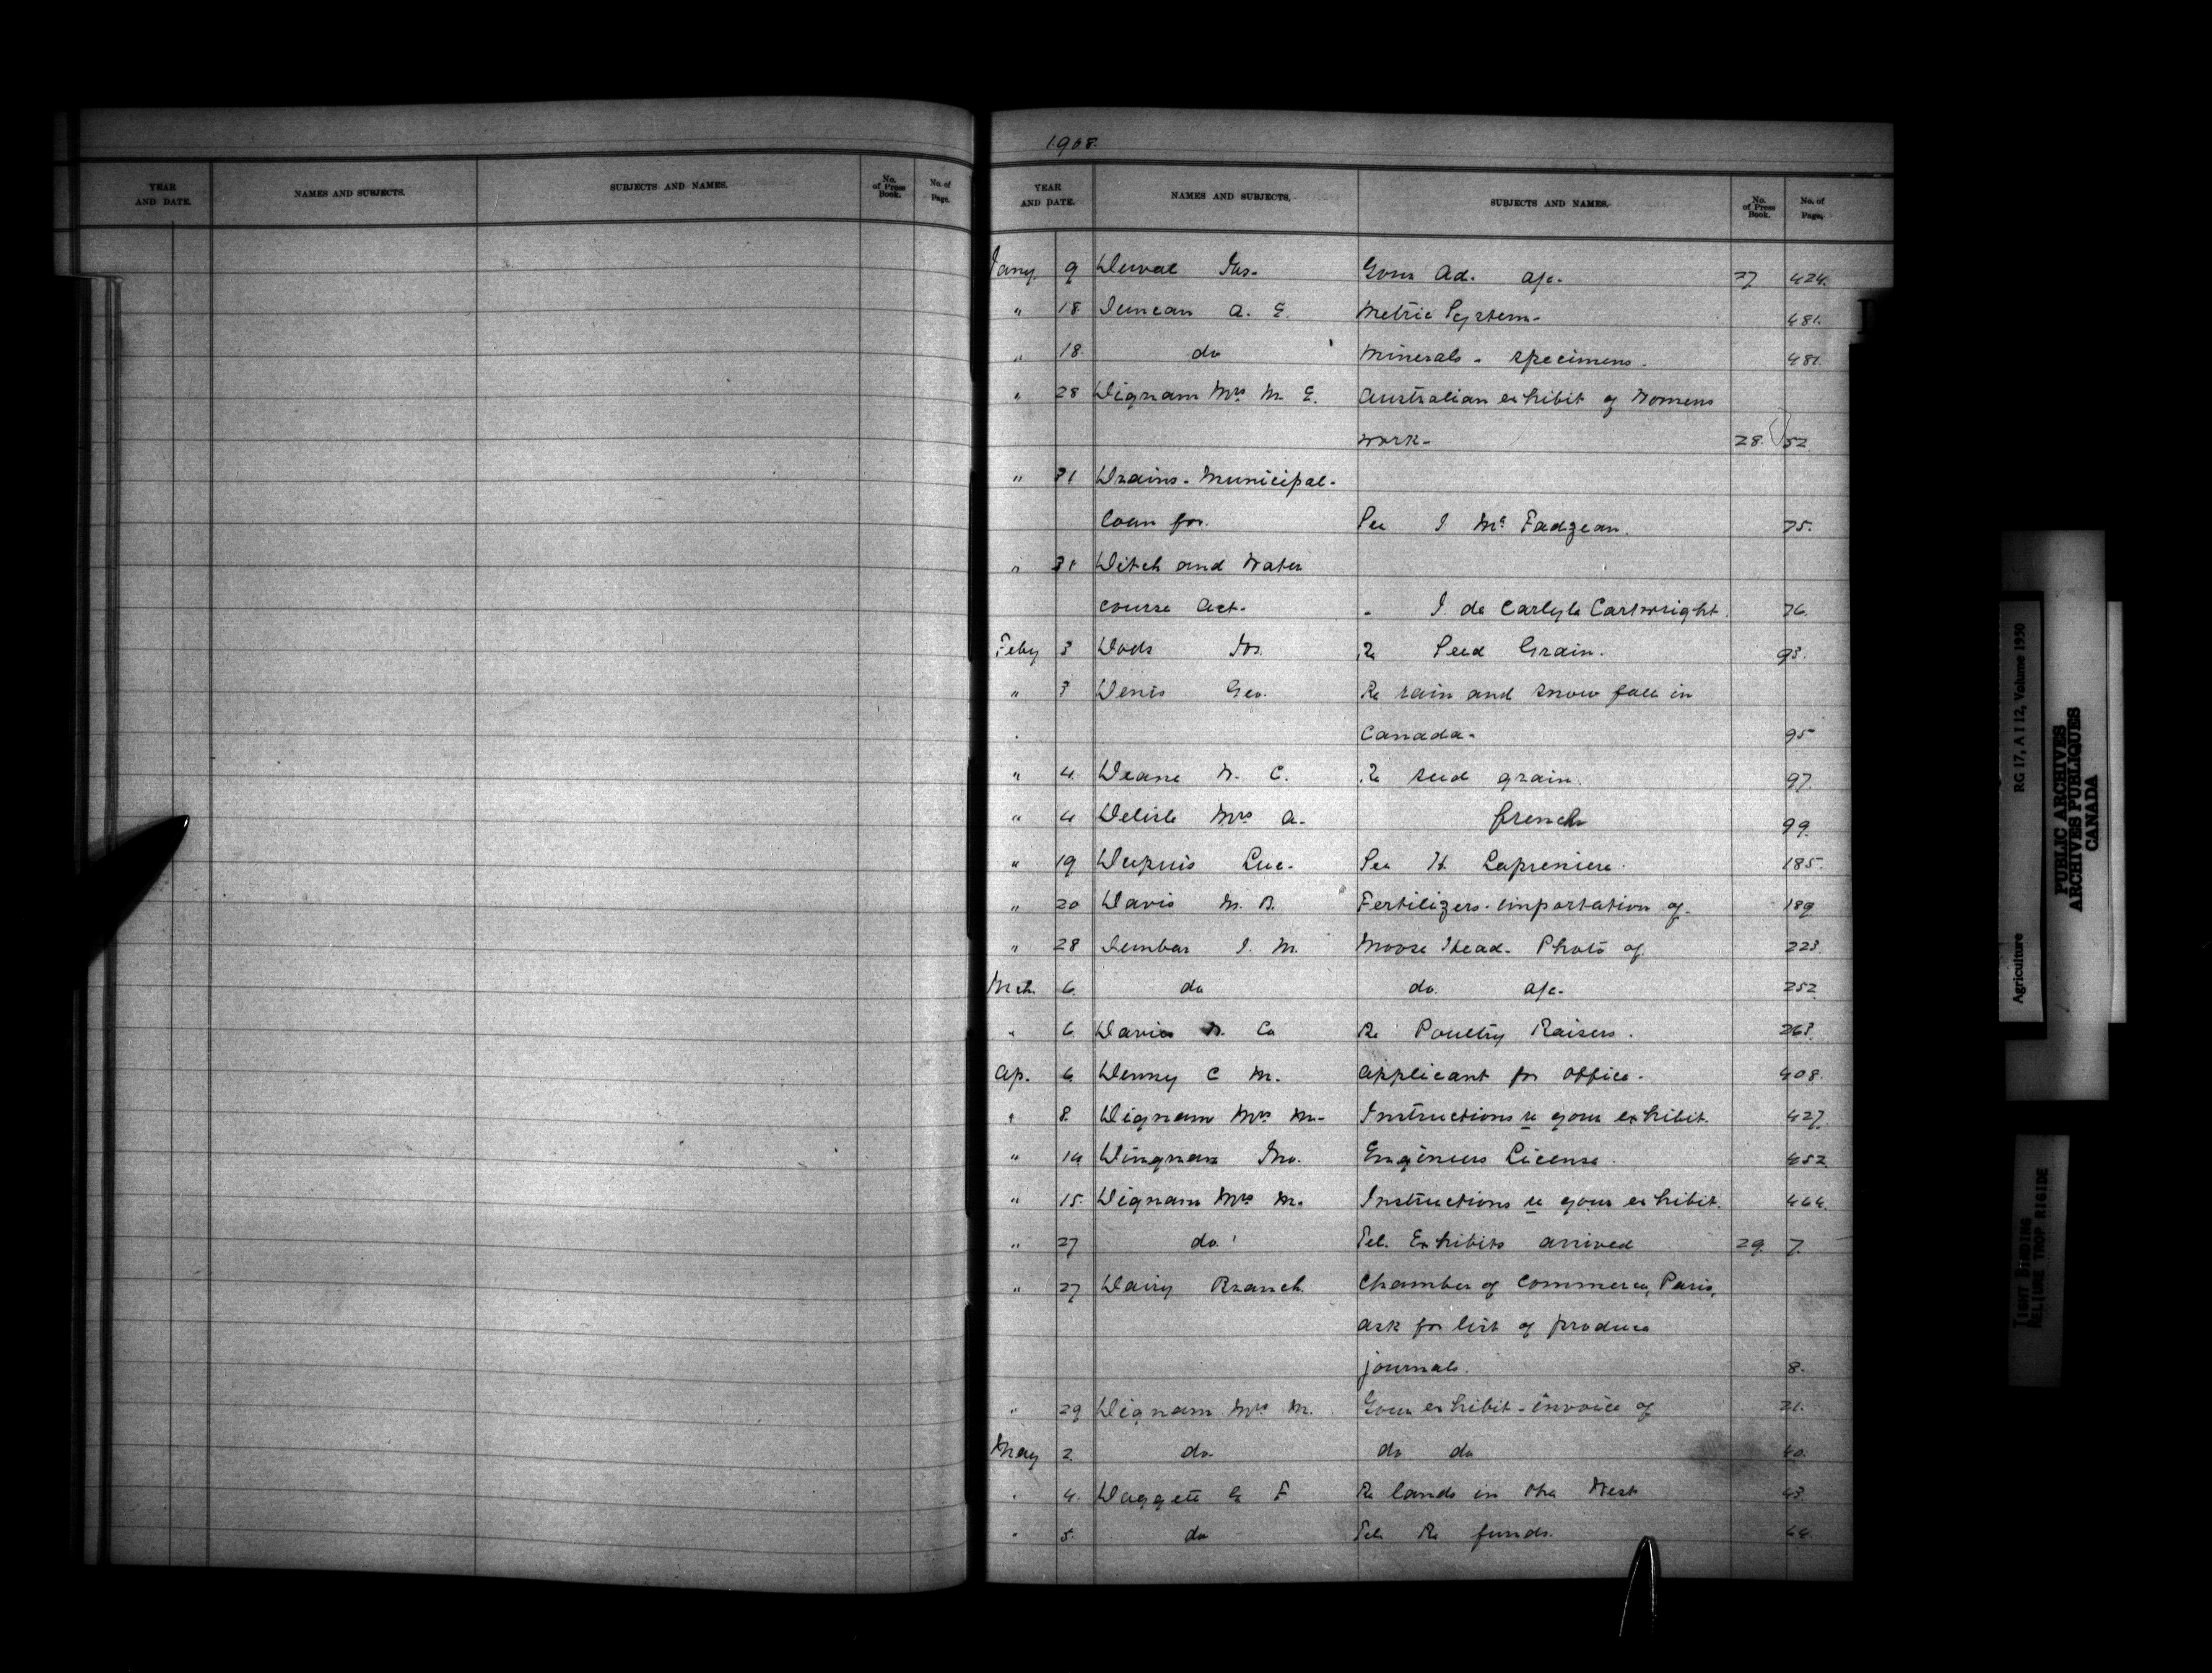 YEAR AND DATE. NAMES AND SUBJECTS. SUBJECTS AND NAMES. No. of Press Book. No. of Page.
1908.
YEAR AND DATE. NAMES AND SUBJECTS. SUBJECTS AND NAMES. No. of Press Book. No. of Page.
Jany. 9 Duval Jas. Your Ad. a/c. 27 424.
" 18 Duncan A. E. Metric System. 481.
" 18. do Minerals - specimens. 481.
" 28 Dignam Mrs M E. Australian exhibit of Womens
work. 28. 52.
" 31 Drains - Municipal -
Loan for. See J McFadzean. 75.
" 31 Ditch and Water
course Act. " J. de Carlyle Cartwright. 76.
Feby 3 Dods Re Seed Grain. 93.
" 3 Denis Geo. Re rain and snow fall in
Canada. 95
" 4. Deane W. C. Re seed grain. 97.
" 4 Delisle Mrs A. french 99.
" 19 Dupuis Luc. See H. Lapreniere. 185.
" 20 Davis M. B. Fertilizers - importation of. 189
" 28 Dunbar J. M. Moose Head - Photo of. 223.
Mch. 6. do do. a/c. 252.
" 6. Davies W. Co Re Poultry Raisers. 263.
Ap. 6. Denny C M. Applicant for office. 408.
" 8. Dignam Mrs M. Instructions re your exhibit. 427.
" 14 Dingman Jno. Engineers License. 452
" 15. Dignam Mrs M. Instructions re your exhibit. 464.
" 27 do. Tel. Exhibits arrived 29. 7.
" 27 Dairy Branch. Chamber of Commerce, Paris,
ask for list of produce
journals. 8.
" 29 Dignam Mrs M. Your exhibit - invoice of 21.
May 2. do. do do 40.
" 4. Daggett G F Re lands in the West 43.
" 5. do Tel. Re funds. 44.
Agriculture RG 17, A I 12, Volume 1950
PUBLIC ARCHIVES
ARCHIVES PUBLIQUES
CANADA
TIGHT BINDING
RELIURE TROP RIGIDE